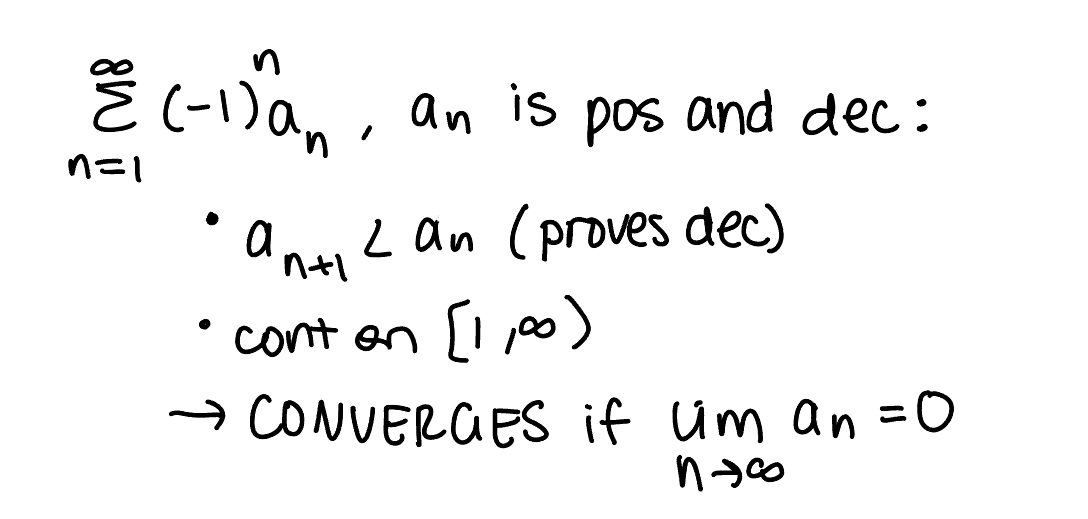 ∞
Σ (-1)ⁿaₙ , aₙ is pos and dec:
n=1
• aₙ₊₁ < aₙ (proves dec)
• cont on [1,∞)
→ CONVERGES if lim aₙ = 0
n→∞